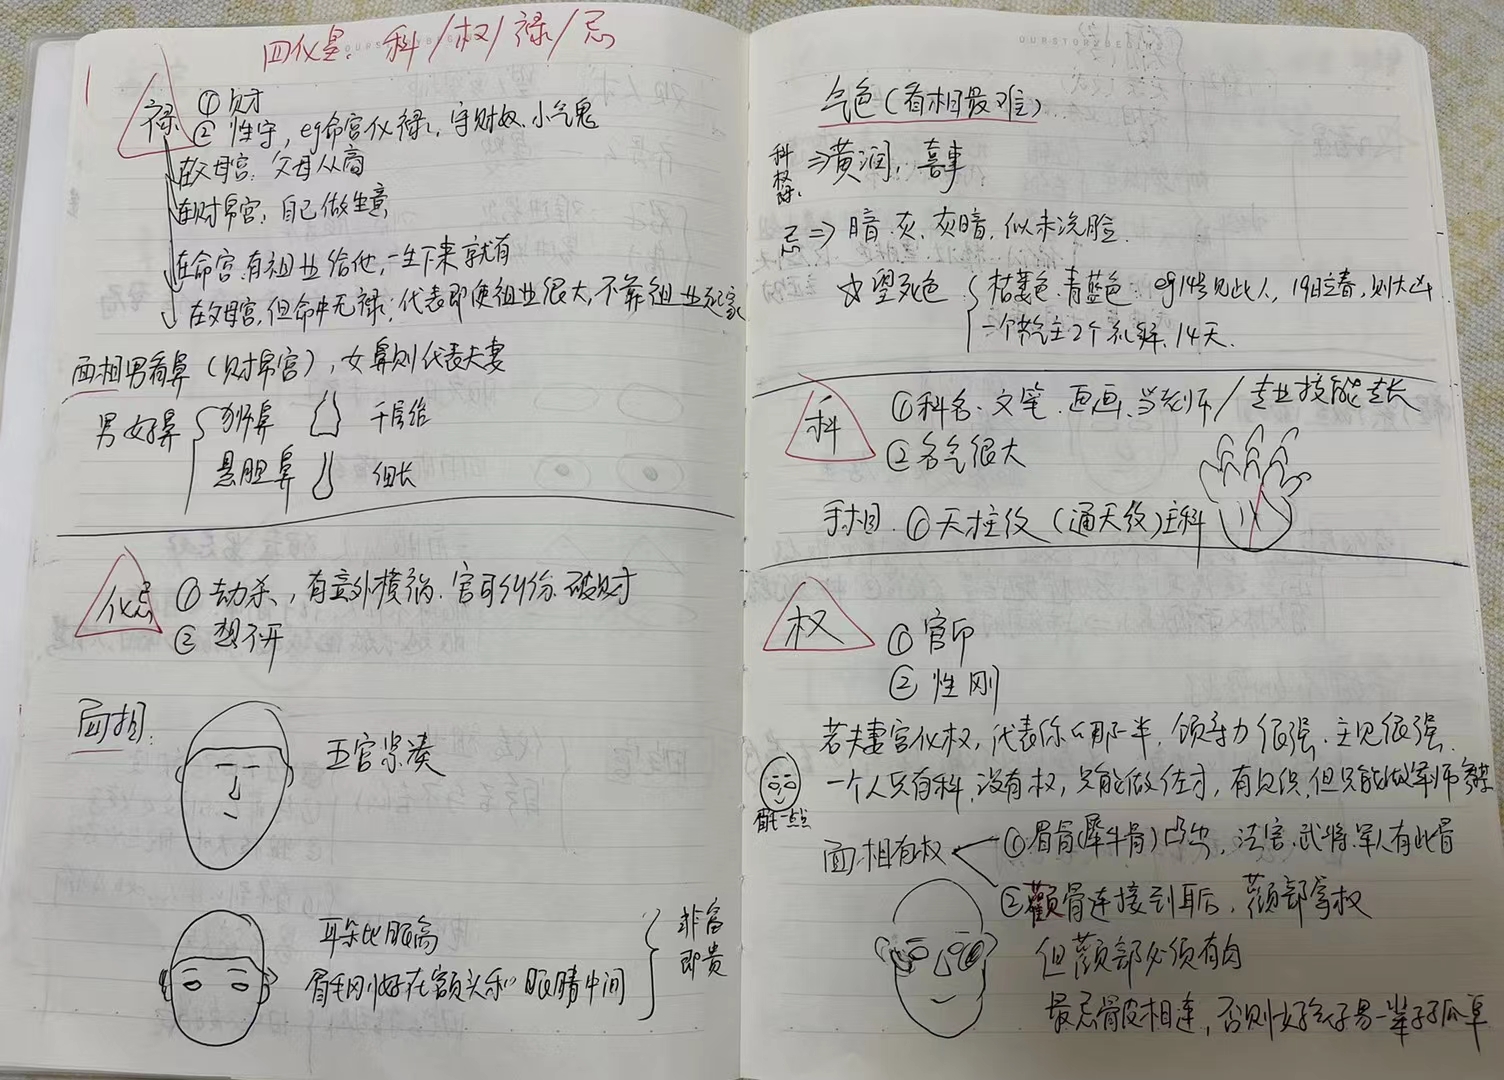 四化星：科/权/禄/忌
禄 ① 财
② 性守，eg命宫化禄，守财奴、小气鬼
在父母宫：父母从商
在财帛宫：自己做生意
在命宫，有祖业给他，一生下来就有
在父母宫，但命中无禄，代表即使祖业很大，不靠祖业起家
面相男看鼻（财帛宫），女鼻则代表夫妻
男好鼻
狮鼻
悬胆鼻 细长
化忌 ① 劫杀，有意外横祸、官司纠纷、破财
② 想不开
面相：
五官紧凑
耳朵比眼高
眉毛刚好在额头和眼睛中间
非富
即贵
气色（看相最难）
科权禄 ⇒ 黄润，喜事
忌 ⇒ 暗、灰、灰暗，似未洗脸
☆ 望死色 枯萎色、青蓝色 eg14号见此人，19日立春，则大凶
一个节气主2个礼拜，14天.
科 ① 科名、文笔、画画、当老师/专业技能专长
② 名气很大
手相 ① 天柱纹（通天纹）主科
权 ① 官印
② 性刚
若夫妻宫化权，代表你的那一半，领导力很强、主见很强
一个人只有科，没有权，只能做佐才，有见识，但只能做军师参谋
面相有权
① 眉骨（犀牛骨）凸出，法官、武将、军人有此骨
② 颧骨连接到耳后，颧部掌权
但颧部必须有肉
最忌骨皮相连，否则